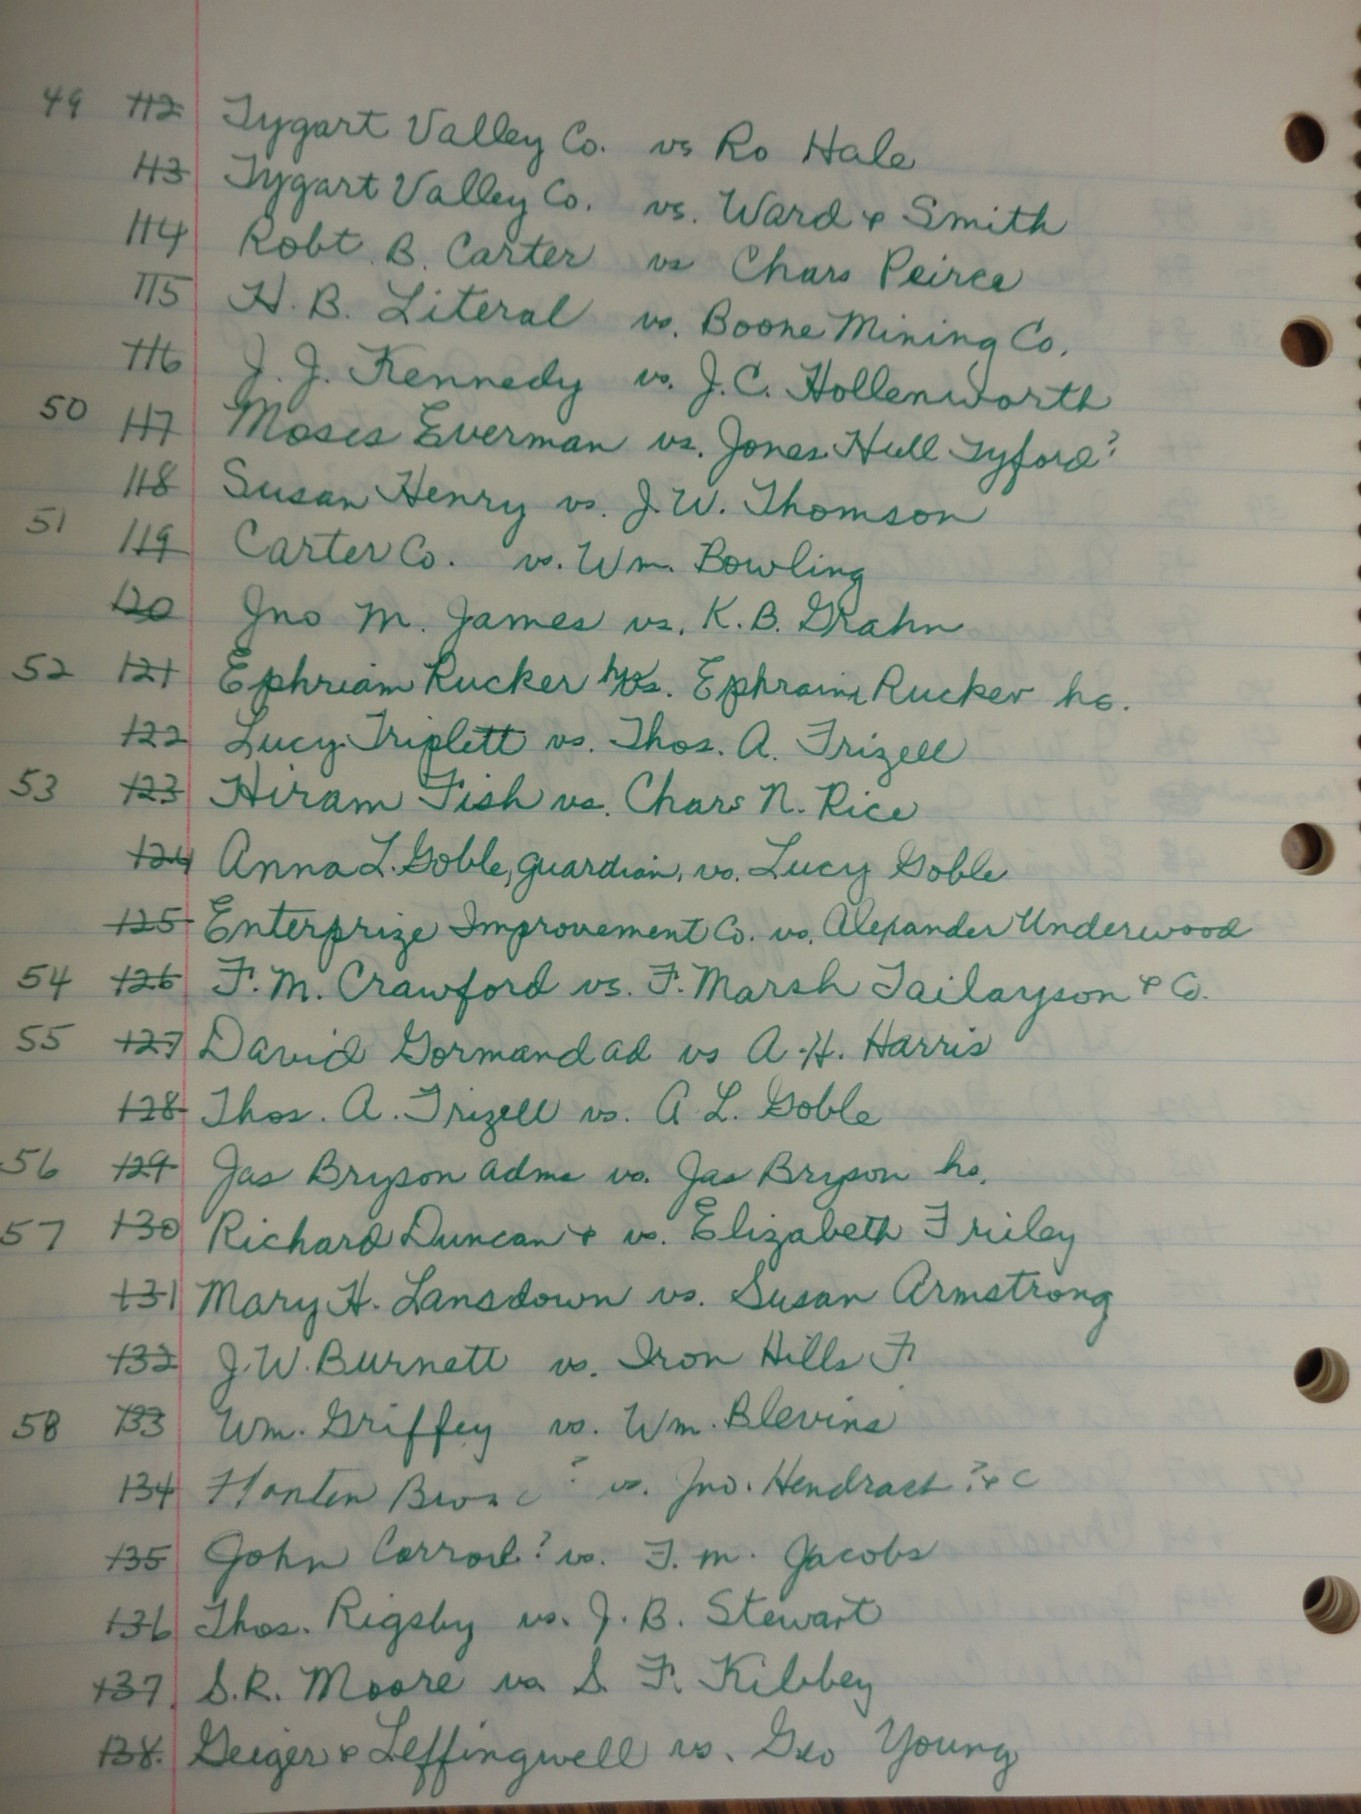 49 112 Tygart Valley Co. vs Ro Hale
113 Tygart Valley Co. vs. Ward & Smith
114 Robt. B. Carter vs Chars Peirce
115 H. B. Literal vs. Boone Mining Co.
116 J. J. Kennedy vs. J.C. Hollenworth
50 117 Moses Everman vs. Jones Hull Tyford?
118 Susan Henry vs. J.W. Thomson
51 119 Carter Co. vs. Wm. Bowling
120 Jno M. James vs. K.B. Grahn
52 121 Ephriam Rucker hrs vs. Ephraim Rucker hs.
122 Lucy Triplett vs. Thos. A. Frizell
53 123 Hiram Fish vs. Chars N. Rice
124 Anna L. Goble, guardian, vs. Lucy Goble
125 Enterprize Improvement Co. vs. Alexander Underwood
54 126 F. M. Crawford vs. F. Marsh Tailayson & Co.
55 127 David Gormand ad vs A. H. Harris
128 Thos. A. Frizell vs. A L. Goble
56 129 Jas Bryson adms vs. Jas Bryson hs.
57 130 Richard Duncan & vs. Elizabeth Friley
131 Mary H. Lansdown vs. Susan Armstrong
132 J.W. Burnett vs. Iron Hills F
58 133 Wm. Griffey vs. Wm. Blevins
134 Bros c ? vs. Jno. ? & C
135 John Carrol? vs. F. M. Jacobs
136 Thos. Rigsby vs. J. B. Stewart
137. S.R. Moore vs S. F. Kibbey
138. Geiger & Leffingwell vs. Geo Young